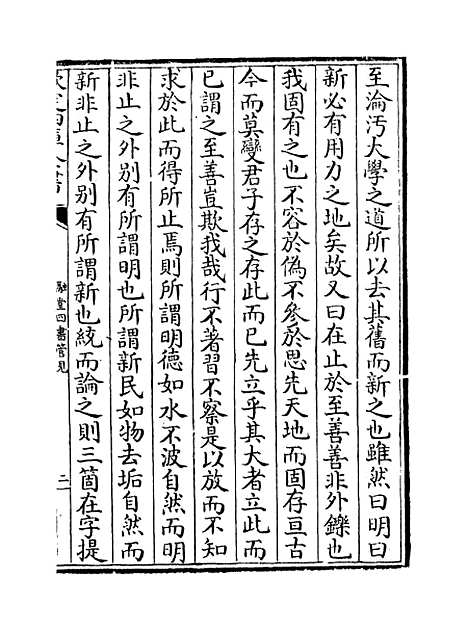 至淪汚大學之道所以去其舊而新之也雖然曰明曰
新必有用力之地矣故又曰在止於至善善非外鑠也
我固有之也不容於偽不參於思先天地而固存亘古
今而莫變君子存之存此而已先立乎其大者立此而
已謂之至善豈欺我哉行不著習不察是以放而不知
求於此而得所止焉則所謂明德如水不波自然而明
非止之外别有所謂明也所謂新民如物去垢自然而
新非止之外别有所謂新也統而論之則三箇在字提
融堂四書管見
二